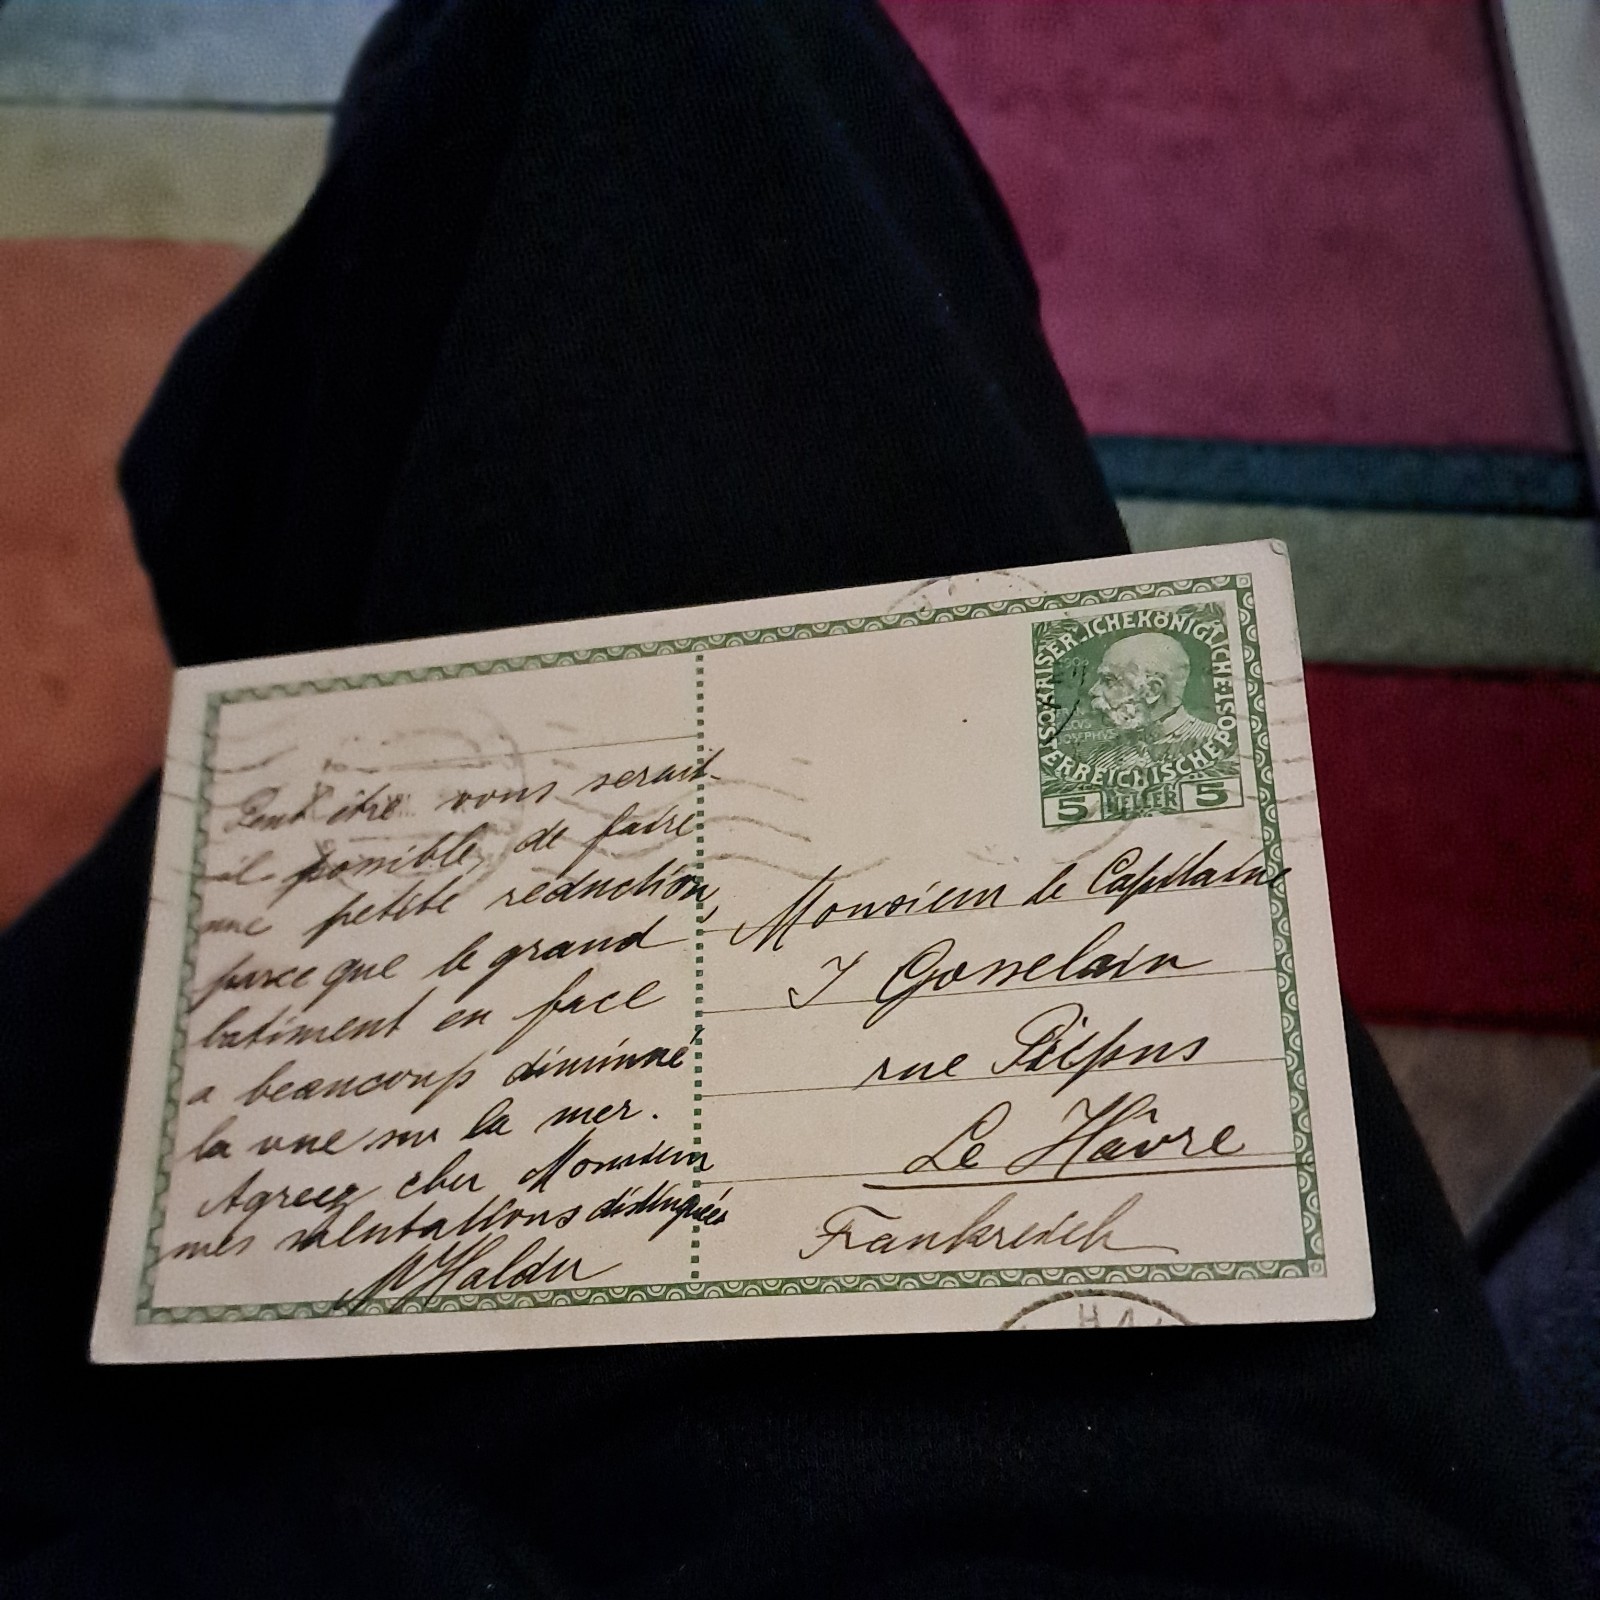 Peut être vous serait-
il possible, de faire
une petite réduction,
parce que le grand
batiment en face
a beaucoup diminué
la vue sur la mer.
Agreez cher Monsieur
mes salutations distinguées
KAISERLICHEKÖNIGLICHE POST
ÖSTERREICHISCHE
5 HELLER 5
Monsieur le Capitaine
J Gosselain
rue Picpus
Le Hâvre
Frankreich